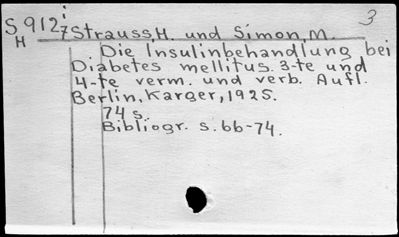 3
S 9127
i
H
Strauss, H. und Simon, M.
Die Insulinbehandlung bei
Diabetes mellitus. 3-te und
4-te verm. und verb. Aufl.
Berlin, Karger, 1925.
74 s.
Bibliogr. s. 66-74.